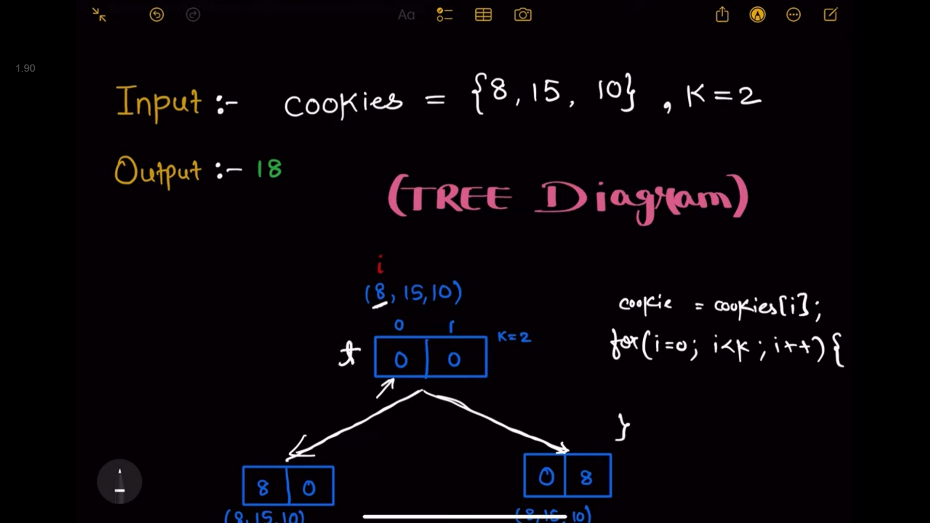 Aa
1.90
Input :- cookies = {8, 15, 10}, K=2
Output :- 18
(TREE Diagram)
i
(8, 15, 10)
0 1
K=2
t 0 0
cookie = cookies[i];
for(i=0; i<k; i++) {
}
8 0
0 8
(8,15,10)
(8,15,10)